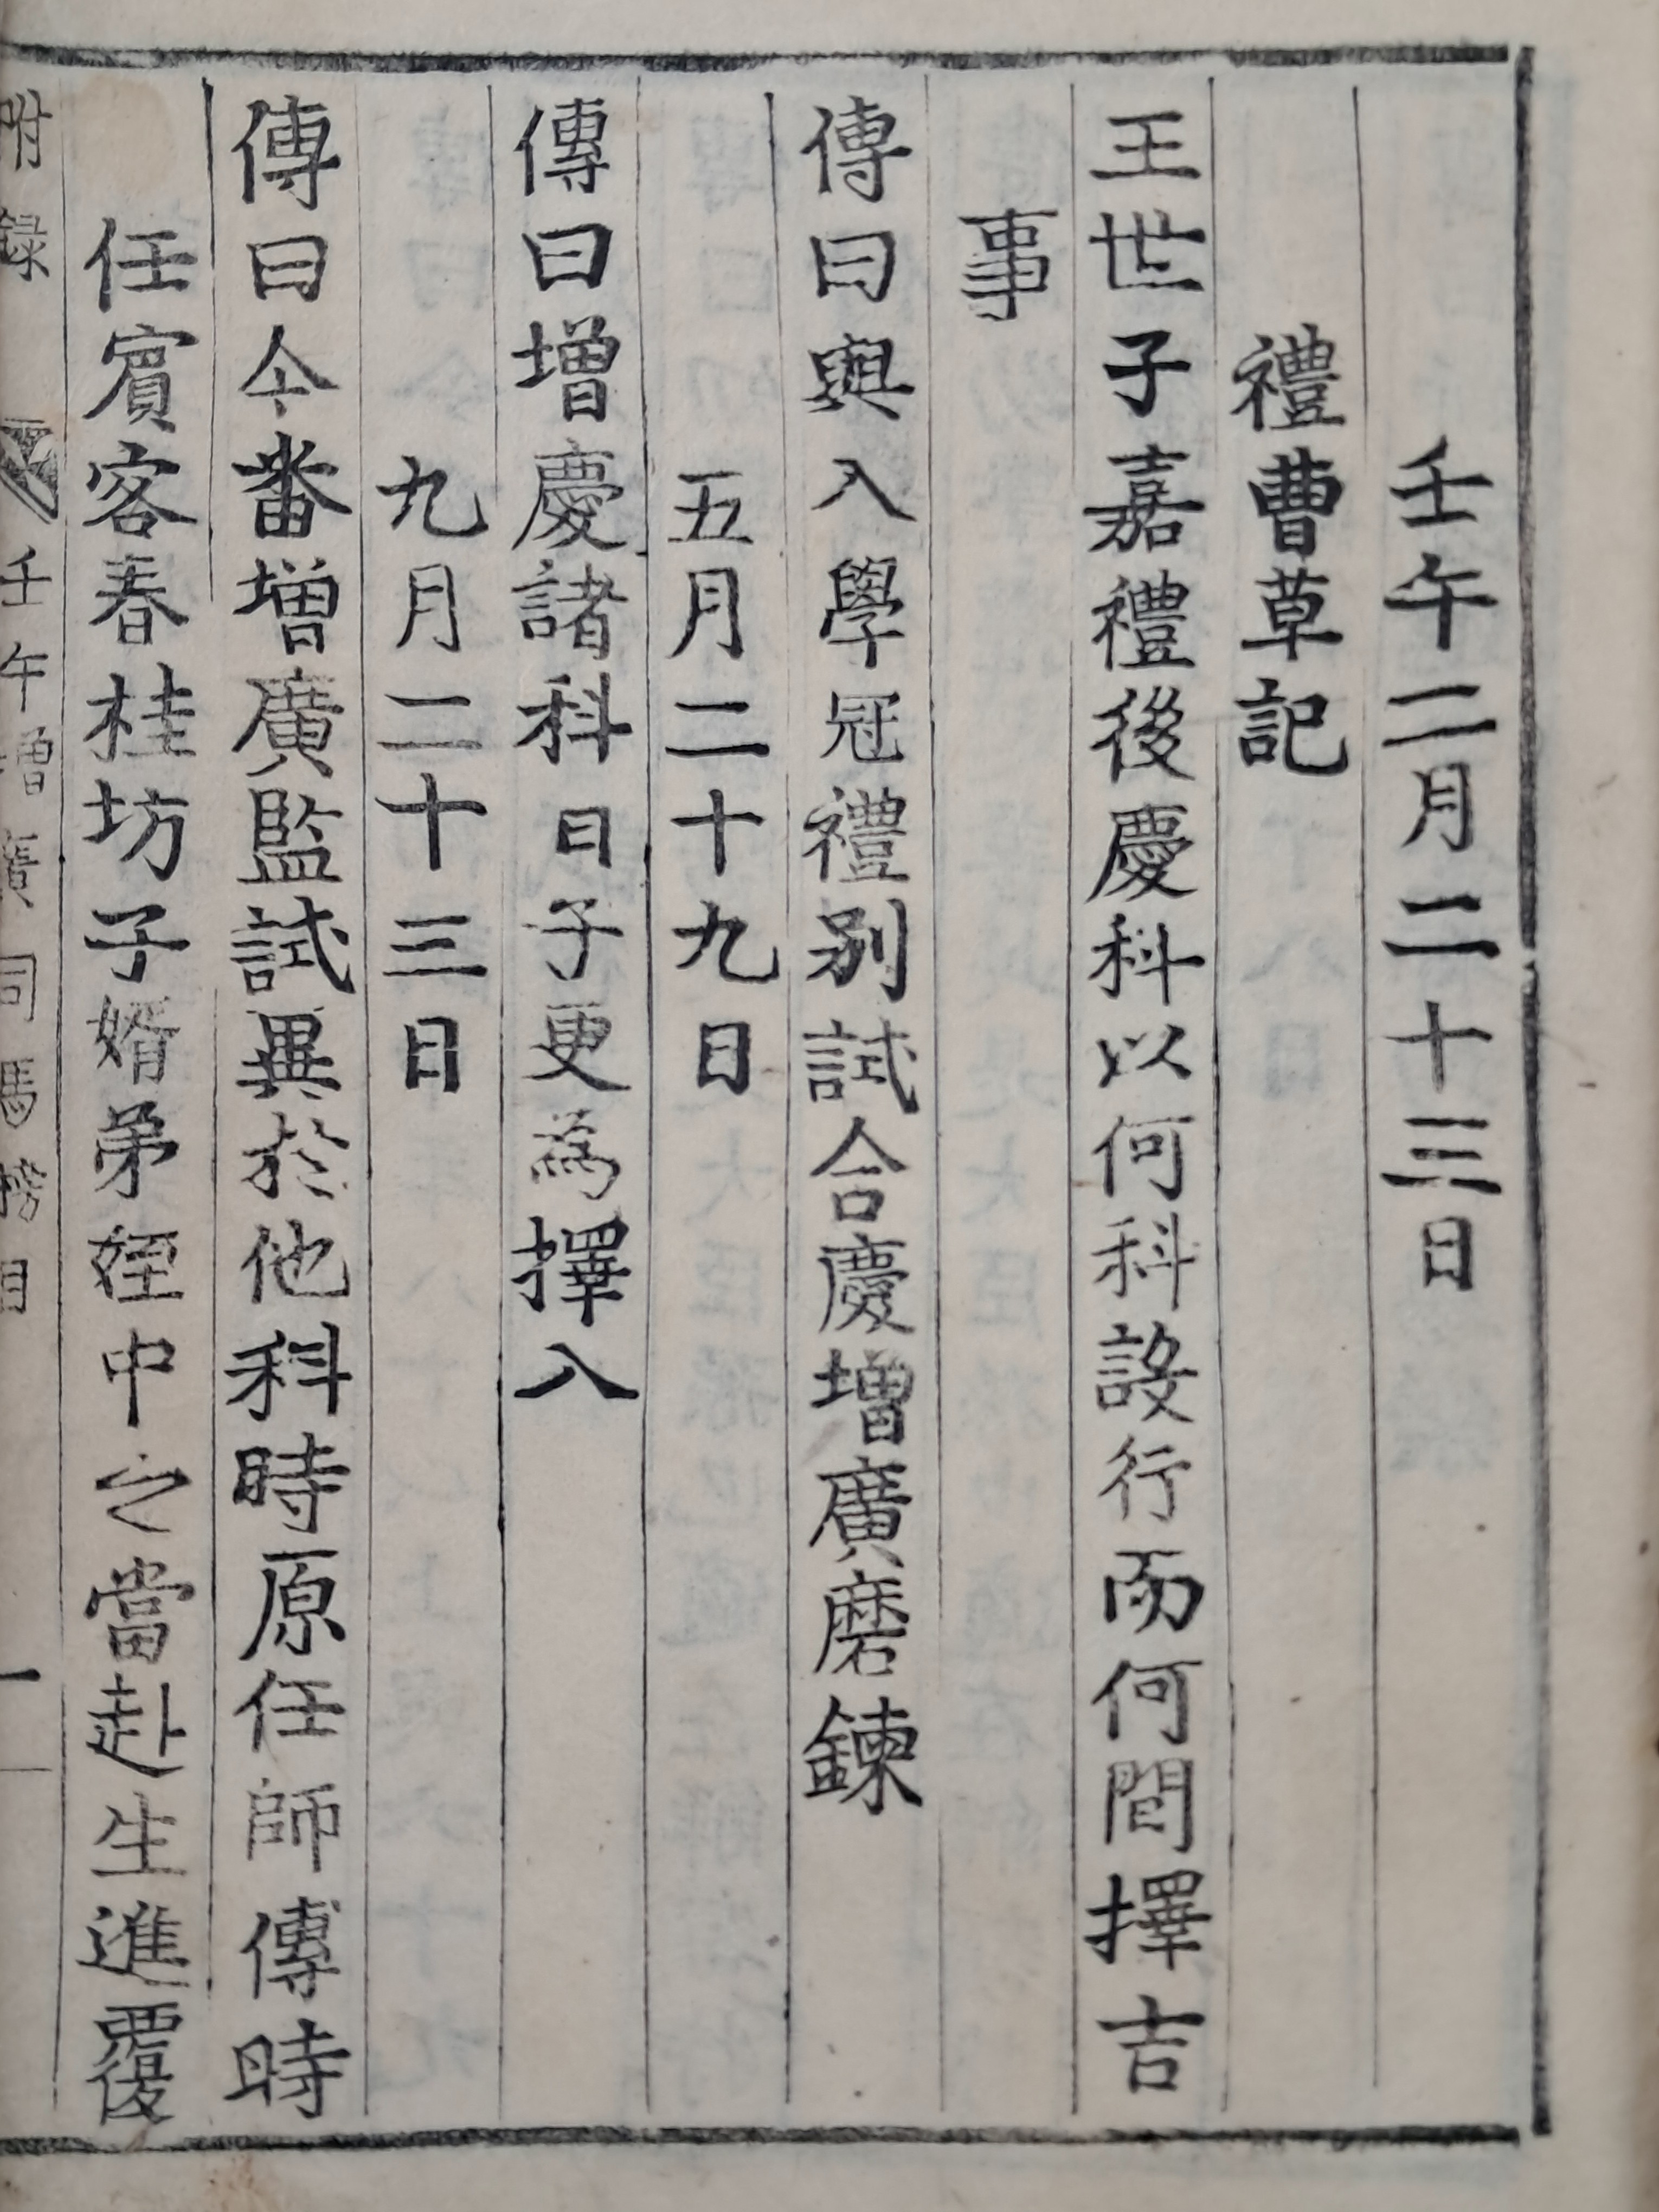 壬午二月二十三日
禮曹草記
王世子嘉禮後慶科以何科設行而何間擇吉
事
傳曰與入學冠禮別試合慶增廣磨鍊
五月二十九日
傳曰增慶諸科日子更爲擇入
九月二十三日
傳曰今番增廣監試異於他科時原任師傅時
任賓客春桂坊子婿弟姪中之當赴生進覆
附錄 壬午增廣司馬榜目 一